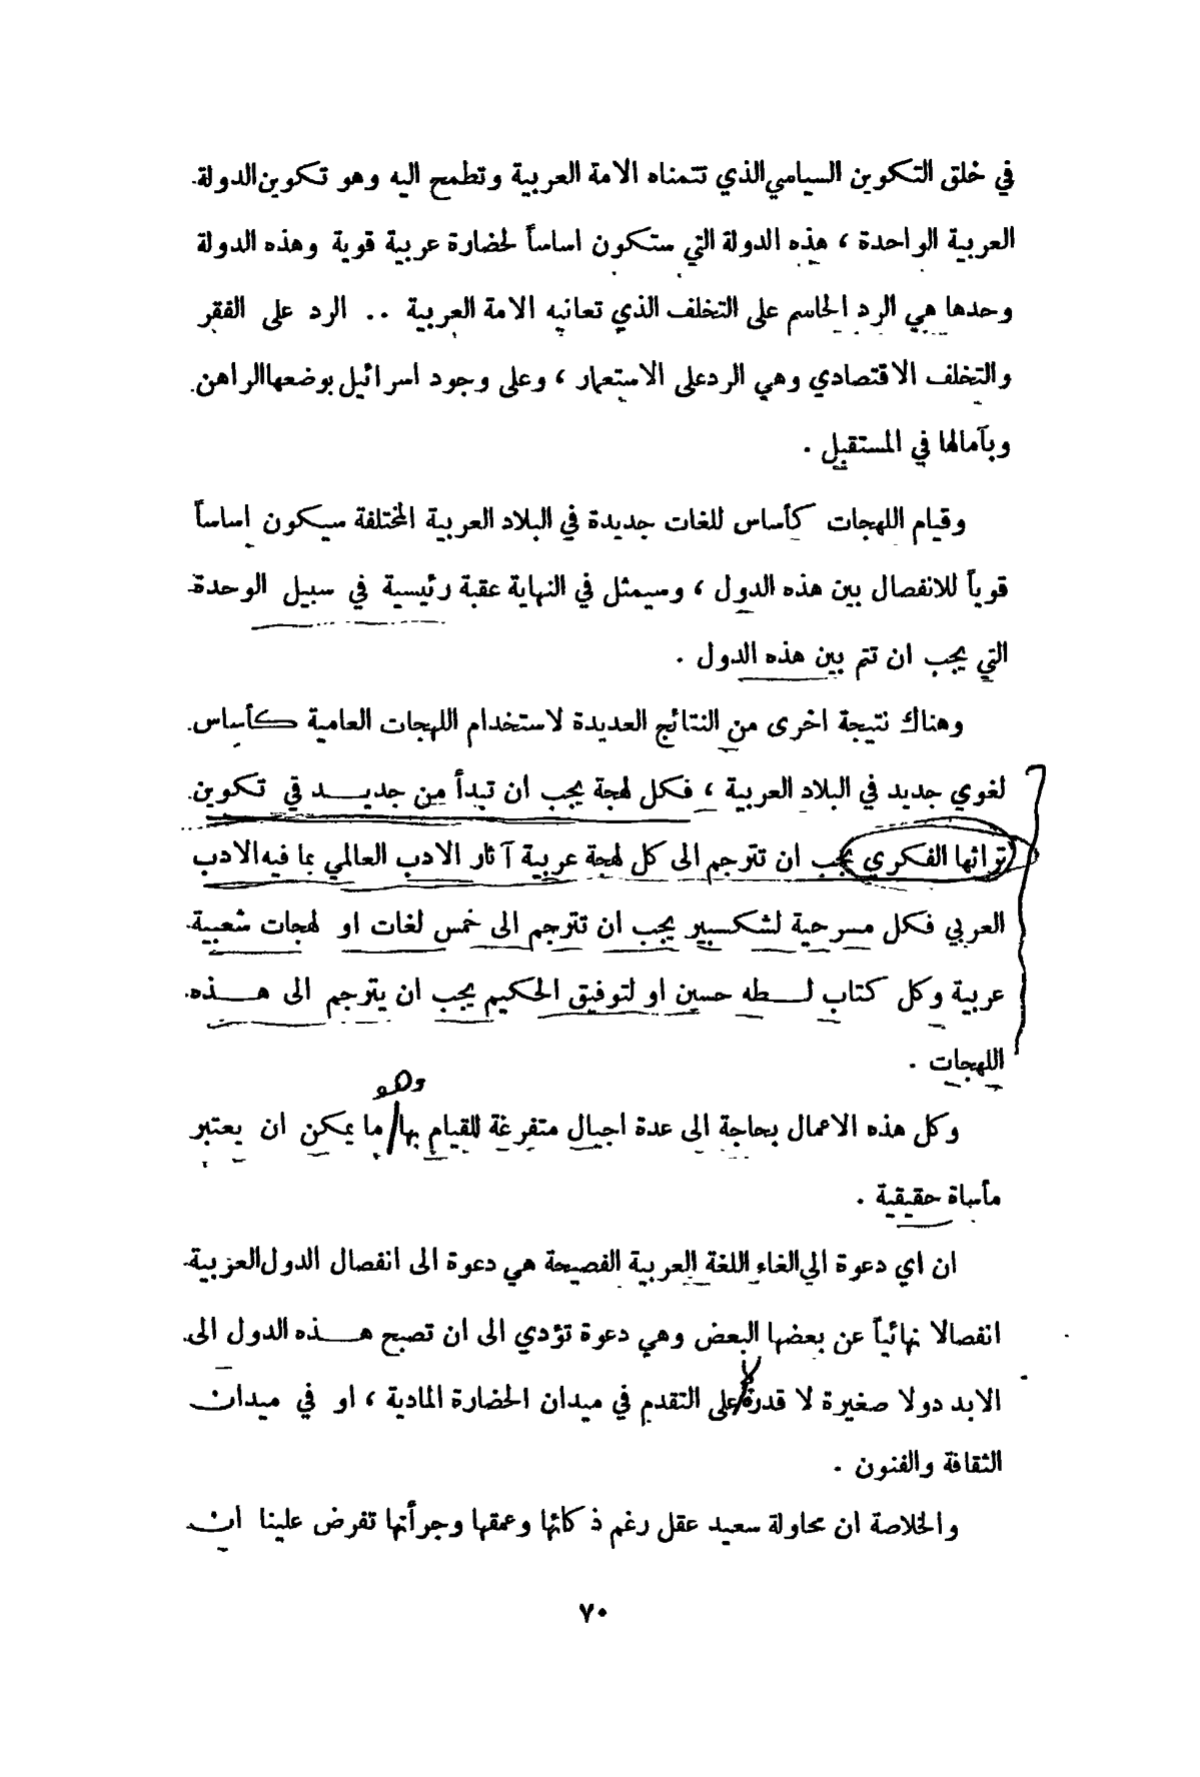 في خلق التكوين السياسي الذي تتمناه الامة العربية وتطمح اليه وهو تكوين الدولة
العربية الواحدة ، هذه الدولة التي ستكون اساساً لحضارة عربية قوية وهذه الدولة
وحدها هي الرد الحاسم على التخلف الذي تعانيه الامة العربية .. الرد على الفقر
والتخلف الاقتصادي وهي الرد على الاستعمار ، وعلى وجود اسرائيل بوضعها الراهن
وبآمالها في المستقبل .
وقيام اللهجات كأساس للغات جديدة في البلاد العربية المختلفة سيكون اساساً
قوياً للانفصال بين هذه الدول ، وسيمثل في النهاية عقبة رئيسية في سبيل الوحدة
التي يجب ان تتم بين هذه الدول .
وهناك نتيجة اخرى من النتائج العديدة لاستخدام اللهجات العامية كأساس
لغوي جديد في البلاد العربية ، فكل لهجة يجب ان تبدأ من جديــد في تكوين
تراثها الفكري يجب ان تترجم الى كل لهجة عربية آثار الادب العالمي بما فيه الادب
العربي فكل مسرحية لشكسبير يجب ان تترجم الى خمس لغات او لهجات شعبية
عربية وكل كتاب لــطه حسين او لتوفيق الحكيم يجب ان يترجم الى هــذه
اللهجات .
وهو
وكل هذه الاعمال بحاجة الى عدة اجيال متفرغة للقيام بها/ما يمكن ان يعتبر
مأساة حقيقية .
ان اي دعوة الى الغاء اللغة العربية الفصيحة هي دعوة الى انفصال الدول العربية
انفصالا نهائياً عن بعضها البعض وهي دعوة تؤدي الى ان تصبح هــذه الدول الى
الابد دولا صغيرة لا قدرة على التقدم في ميدان الحضارة المادية ، او في ميدان
الثقافة والفنون .
والخلاصة ان محاولة سعيد عقل رغم ذكائها وعمقها وجرأتها تفرض علينا ان
٧٠